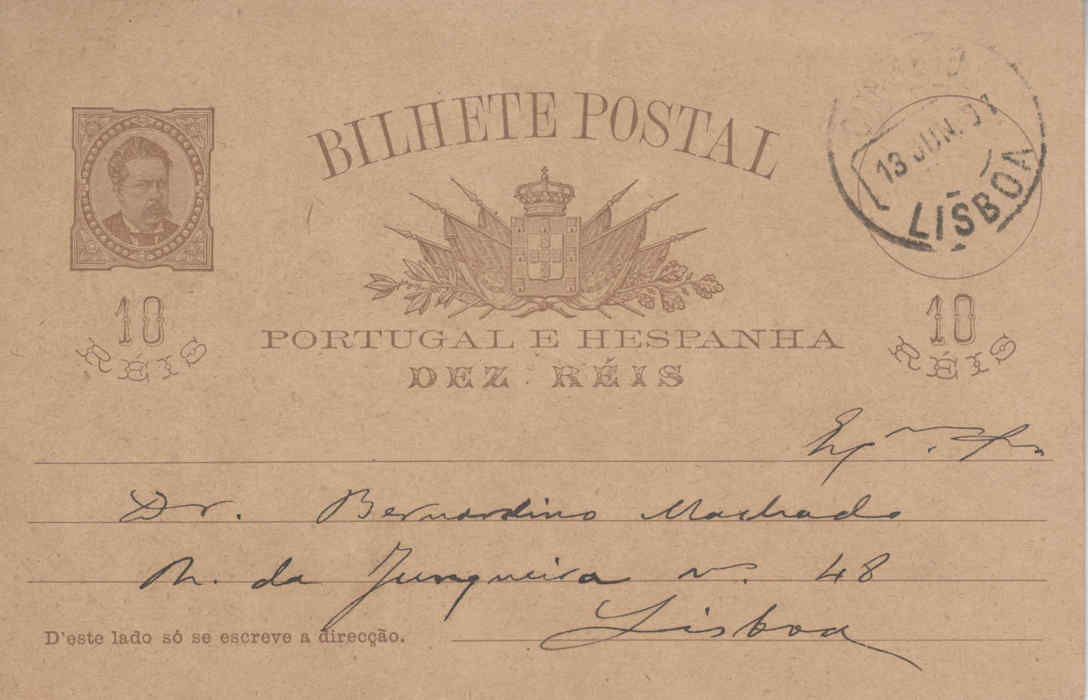 BILHETE POSTAL
13 JUN. 91
LISBOA
10
RÉIS
PORTUGAL E HESPANHA
DEZ RÉIS
10
RÉIS
Exmo. Sr.
Dr. Bernardino Machado
R. da Junqueira nº. 48
Lisboa
D'este lado só se escreve a direcção.